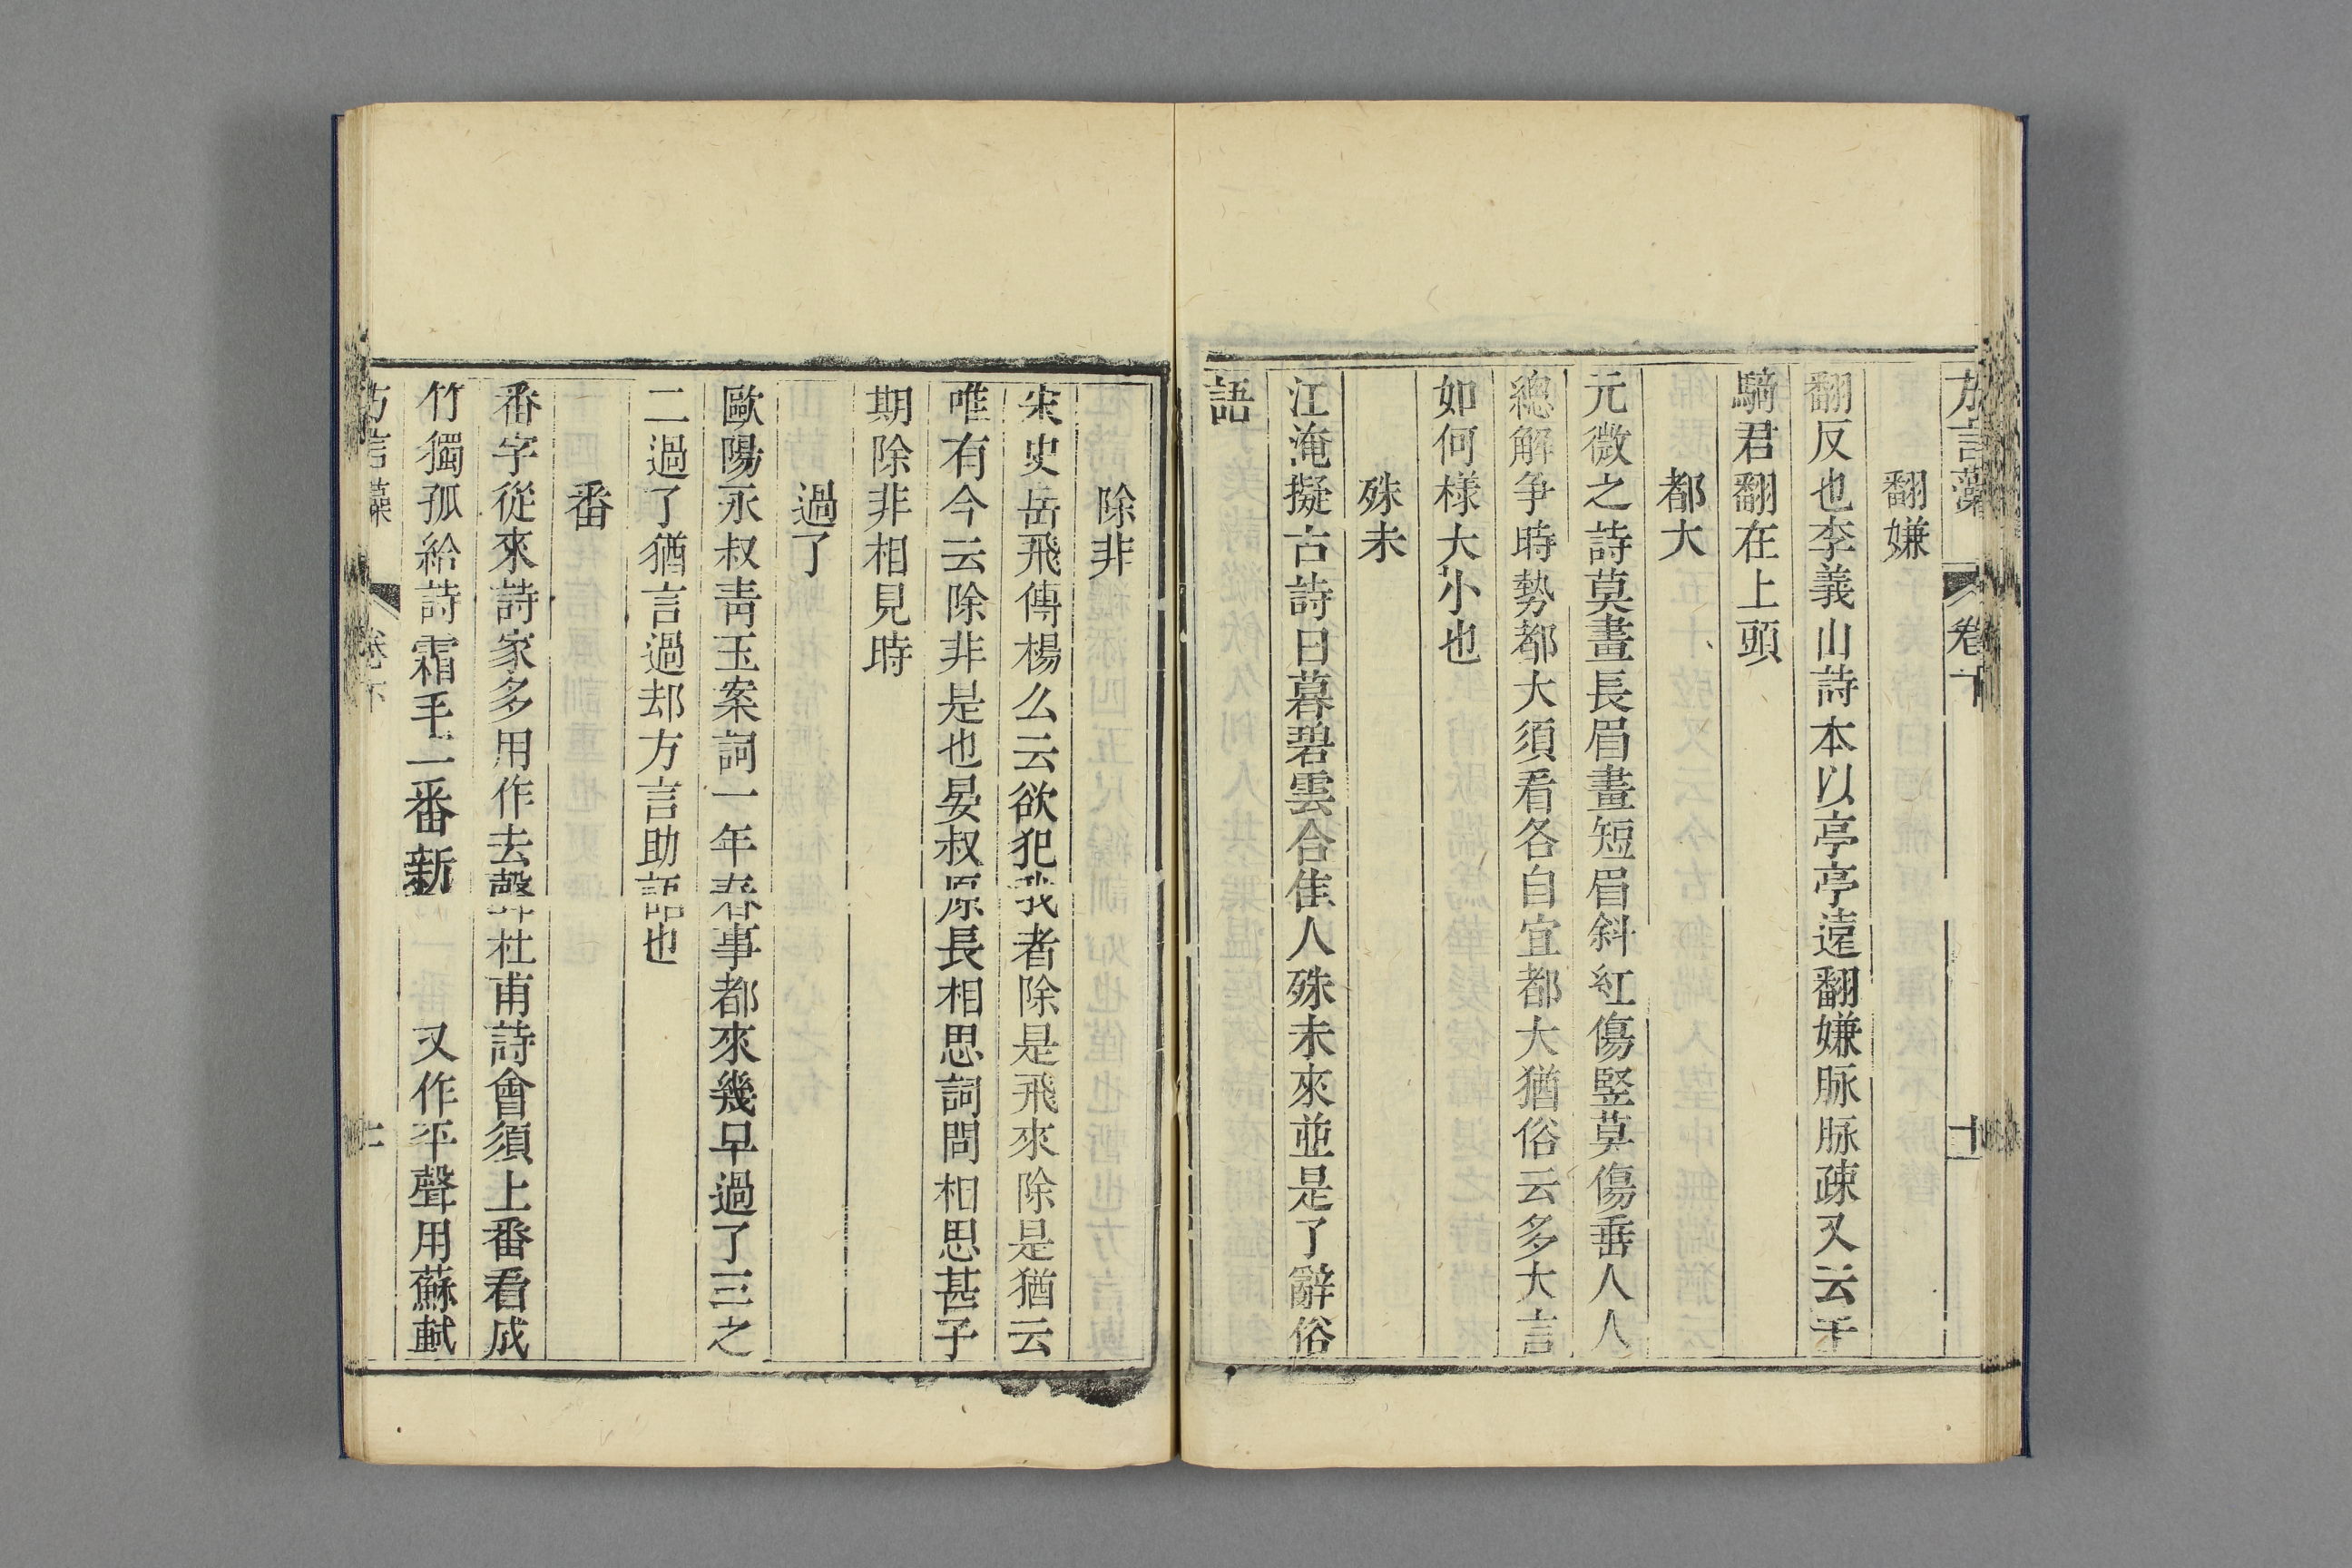 方言藻 卷下 十
翻嫌
翻反也李義山詩本以亭亭遠翻嫌脉脉疎又云千
騎君翻在上頭
都大
元微之詩莫畫長眉畫短眉斜紅傷竪莫傷垂人人
總解争時勢都大須看各自宜都大猶俗云多大言
如何樣大小也
殊未
江淹擬古詩日暮碧雲合佳人殊未來並是了辭俗
語
除非
宋史岳飛傳楊么云欲犯我者除是飛來除是猶云
唯有今云除非是也晏叔原長相思詞問相思甚了
期除非相見時
過了
歐陽永叔靑玉案詞一年春事都來幾早過了三之
二過了猶言過却方言助語也
番
番字從來詩家多用作去聲杜甫詩會須上番看成
竹獨孤給詩霜毛一番新 又作平聲用蘇軾
方言藻 卷下